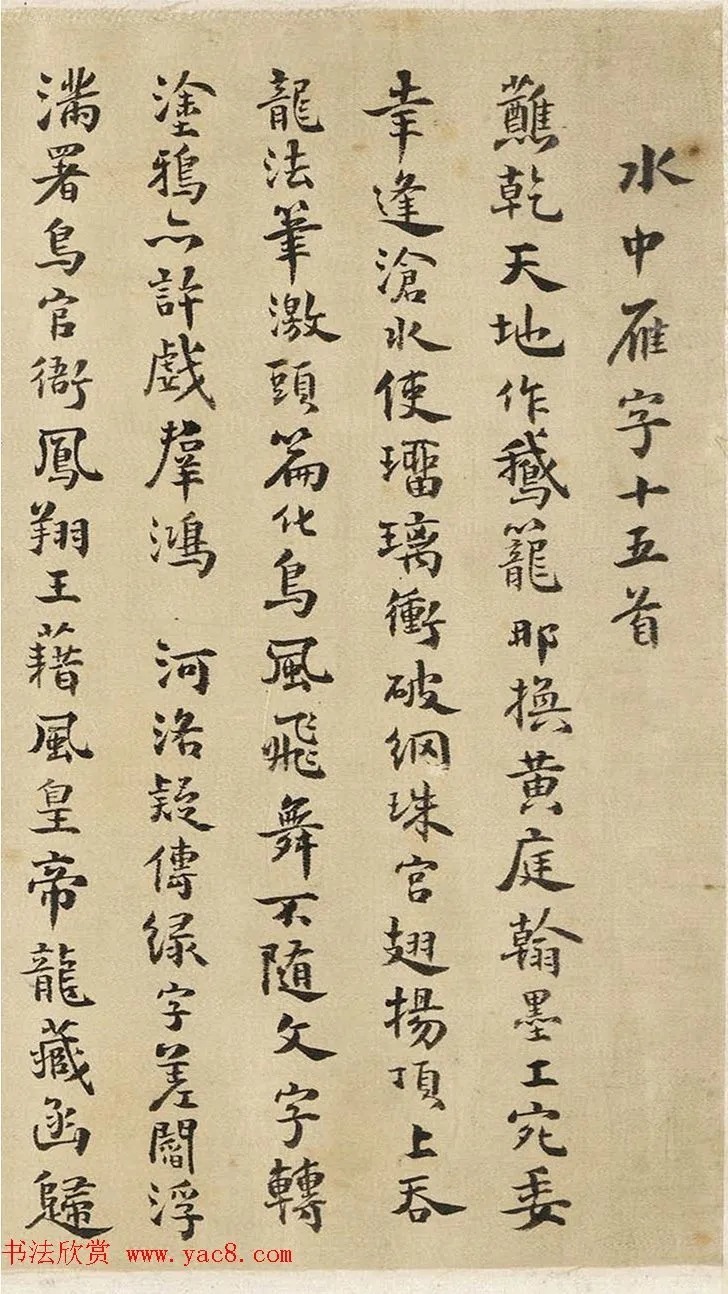 水中雁字十五首
蘸乾天地作鵝籠那換黄庭翰墨工宛委
幸逢滄水使瑠璃衝破網珠宫翅揚頂上吞
龍法筆激頭篇化鳥風飛舞不随文字轉
塗鴉亦許戲羣鴻 河洛疑傳緑字差閻浮
滿署鳥官衙鳳翔王藉風皇帝龍藏函歸
书法欣赏 www.yac8.com